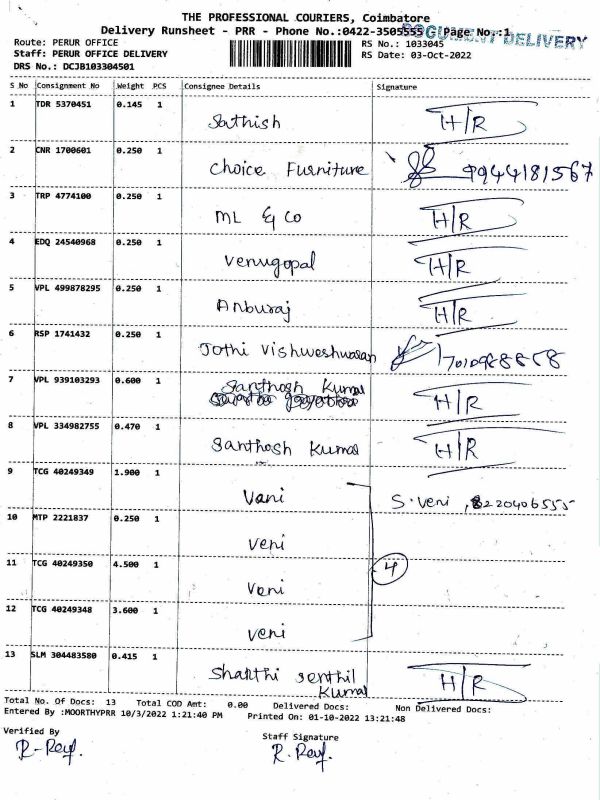 THE PROFESSIONAL COURIERS, Coimbatore
Delivery Runsheet - PRR - Phone No.:0422-3505555 Page No.:1
DOCUMENT DELIVERY
Route: PERUR OFFICE RS No.: 1033045
Staff: PERUR OFFICE DELIVERY RS Date: 03-Oct-2022
DRS No.: DCJB103304501
S No Consignment No Weight PCS Consignee Details Signature
1 TDR 5370451 0.145 1 Sathish H/R
2 CNR 1700601 0.250 1 Choice Furniture 9944181567
3 TRP 4774100 0.250 1 ML & Co H/R
4 EDQ 24540968 0.250 1 Venugopal H/R
5 VPL 499878295 0.250 1 Anburaj H/R
6 RSP 1741432 0.250 1 Jothi Vishweshwaran
7 VPL 939103293 0.600 1 Santhosh Kumar H/R
8 VPL 334982755 0.470 1 Santhosh Kumar H/R
9 TCG 40249349 1.900 1 Vani S. Veni, 8220406555
10 MTP 2221837 0.250 1 Veni
11 TCG 40249350 4.500 1 Veni 4
12 TCG 40249348 3.600 1 Veni
13 SLM 304483580 0.415 1 Shanthi Senthil
Kumar H/R
Total No. Of Docs: 13 Total COD Amt: 0.00 Delivered Docs: Non Delivered Docs:
Entered By :MOORTHYPRR 10/3/2022 1:21:40 PM Printed On: 01-10-2022 13:21:48
Verified By Staff Signature